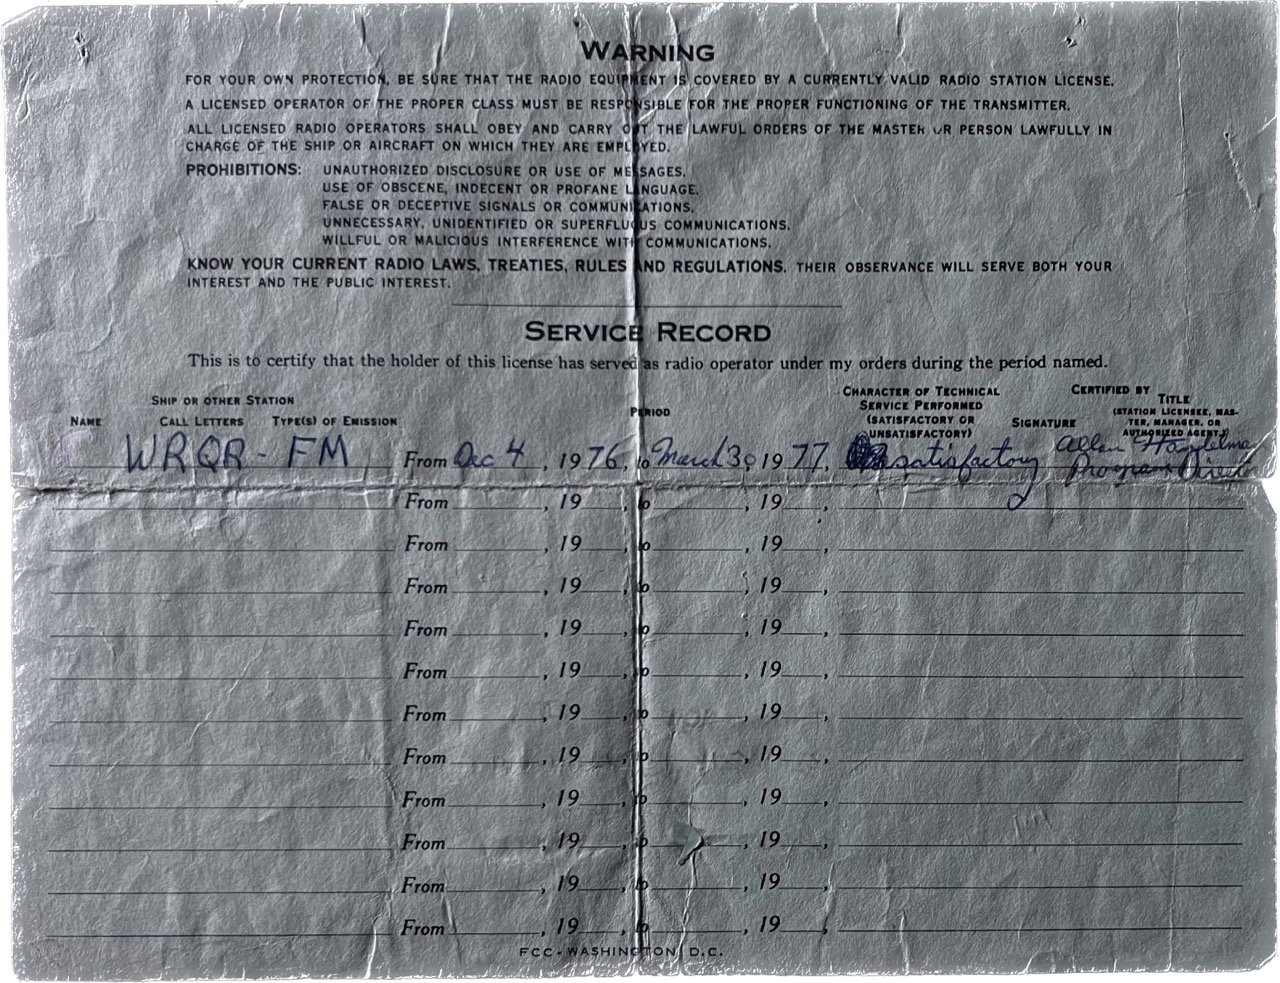 WARNING
FOR YOUR OWN PROTECTION, BE SURE THAT THE RADIO EQUIPMENT IS COVERED BY A CURRENTLY VALID RADIO STATION LICENSE.
A LICENSED OPERATOR OF THE PROPER CLASS MUST BE RESPONSIBLE FOR THE PROPER FUNCTIONING OF THE TRANSMITTER.
ALL LICENSED RADIO OPERATORS SHALL OBEY AND CARRY OUT THE LAWFUL ORDERS OF THE MASTER OR PERSON LAWFULLY IN
CHARGE OF THE SHIP OR AIRCRAFT ON WHICH THEY ARE EMPLOYED.
PROHIBITIONS: UNAUTHORIZED DISCLOSURE OR USE OF MESSAGES.
USE OF OBSCENE, INDECENT OR PROFANE LANGUAGE.
FALSE OR DECEPTIVE SIGNALS OR COMMUNICATIONS.
UNNECESSARY, UNIDENTIFIED OR SUPERFLUOUS COMMUNICATIONS.
WILLFUL OR MALICIOUS INTERFERENCE WITH COMMUNICATIONS.
KNOW YOUR CURRENT RADIO LAWS, TREATIES, RULES AND REGULATIONS. THEIR OBSERVANCE WILL SERVE BOTH YOUR
INTEREST AND THE PUBLIC INTEREST.
SERVICE RECORD
This is to certify that the holder of this license has served as radio operator under my orders during the period named.
SHIP OR OTHER STATION
NAME CALL LETTERS TYPE(S) OF EMISSION
PERIOD
CHARACTER OF TECHNICAL
SERVICE PERFORMED
(SATISFACTORY OR
UNSATISFACTORY)
CERTIFIED BY
SIGNATURE
TITLE
(STATION LICENSEE, MAS-
TER, MANAGER, OR
AUTHORIZED AGENT.)
WRQR - FM From Dec 4, 1976, to March 30 1977, satisfactory Allen Handelman
Program Director
From , 19 , to , 19 ,
From , 19 , to , 19 ,
From , 19 , to , 19 ,
From , 19 , to , 19 ,
From , 19 , to , 19 ,
From , 19 , to , 19 ,
From , 19 , to , 19 ,
From , 19 , to , 19 ,
From , 19 , to , 19 ,
From , 19 , to , 19 ,
From , 19 , to , 19 ,
FCC - WASHINGTON, D.C.